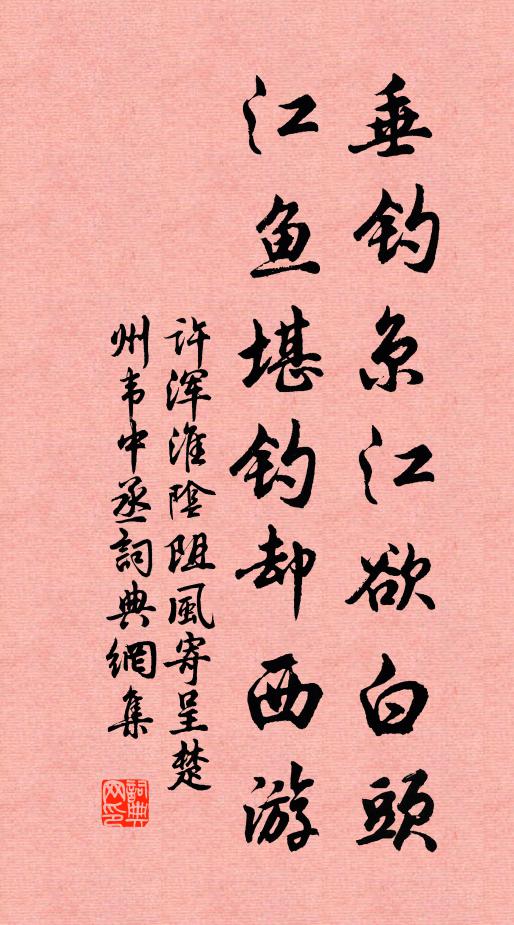 垂钓京江欲白頭
江鱼堪钓却西游
许浑淮陰阻風寄呈楚
州韦中丞詞典網集
詞典网印